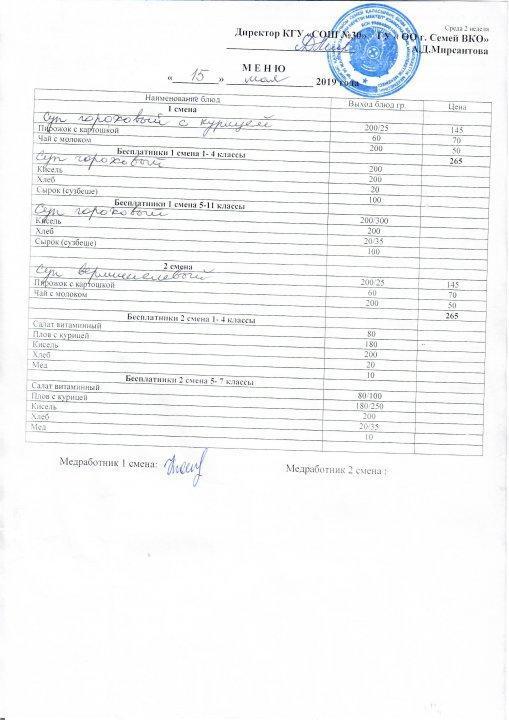 Среда 2 неделя
Директор КГУ «СОШ №30» ГУ « ОО г. Семей ВКО»
А.Д.Мирсаитова
МЕНЮ
« 15 » мая 2019 года
Наименование блюд Выход блюд гр. Цена
1 смена
Суп гороховый с курицей 200/25 145
Пирожок с картошкой 60 70
Чай с молоком 200 50
Бесплатники 1 смена 1- 4 классы 265
Суп гороховый 200
Кисель 200
Хлеб 20
Сырок (сузбеше) 100
Бесплатники 1 смена 5-11 классы
Суп гороховый 200/300
Кисель 200
Хлеб 20/35
Сырок (сузбеше) 100
2 смена
Суп вермишелевый 200/25 145
Пирожок с картошкой 60 70
Чай с молоком 200 50
265
Бесплатники 2 смена 1- 4 классы
Салат витаминный 80
Плов с курицей 180
Кисель 200
Хлеб 20
Мед 10
Бесплатники 2 смена 5- 7 классы
Салат витаминный 80/100
Плов с курицей 180/250
Кисель 200
Хлеб 20/35
Мед 10
Медработник 1 смена:
Медработник 2 смена :